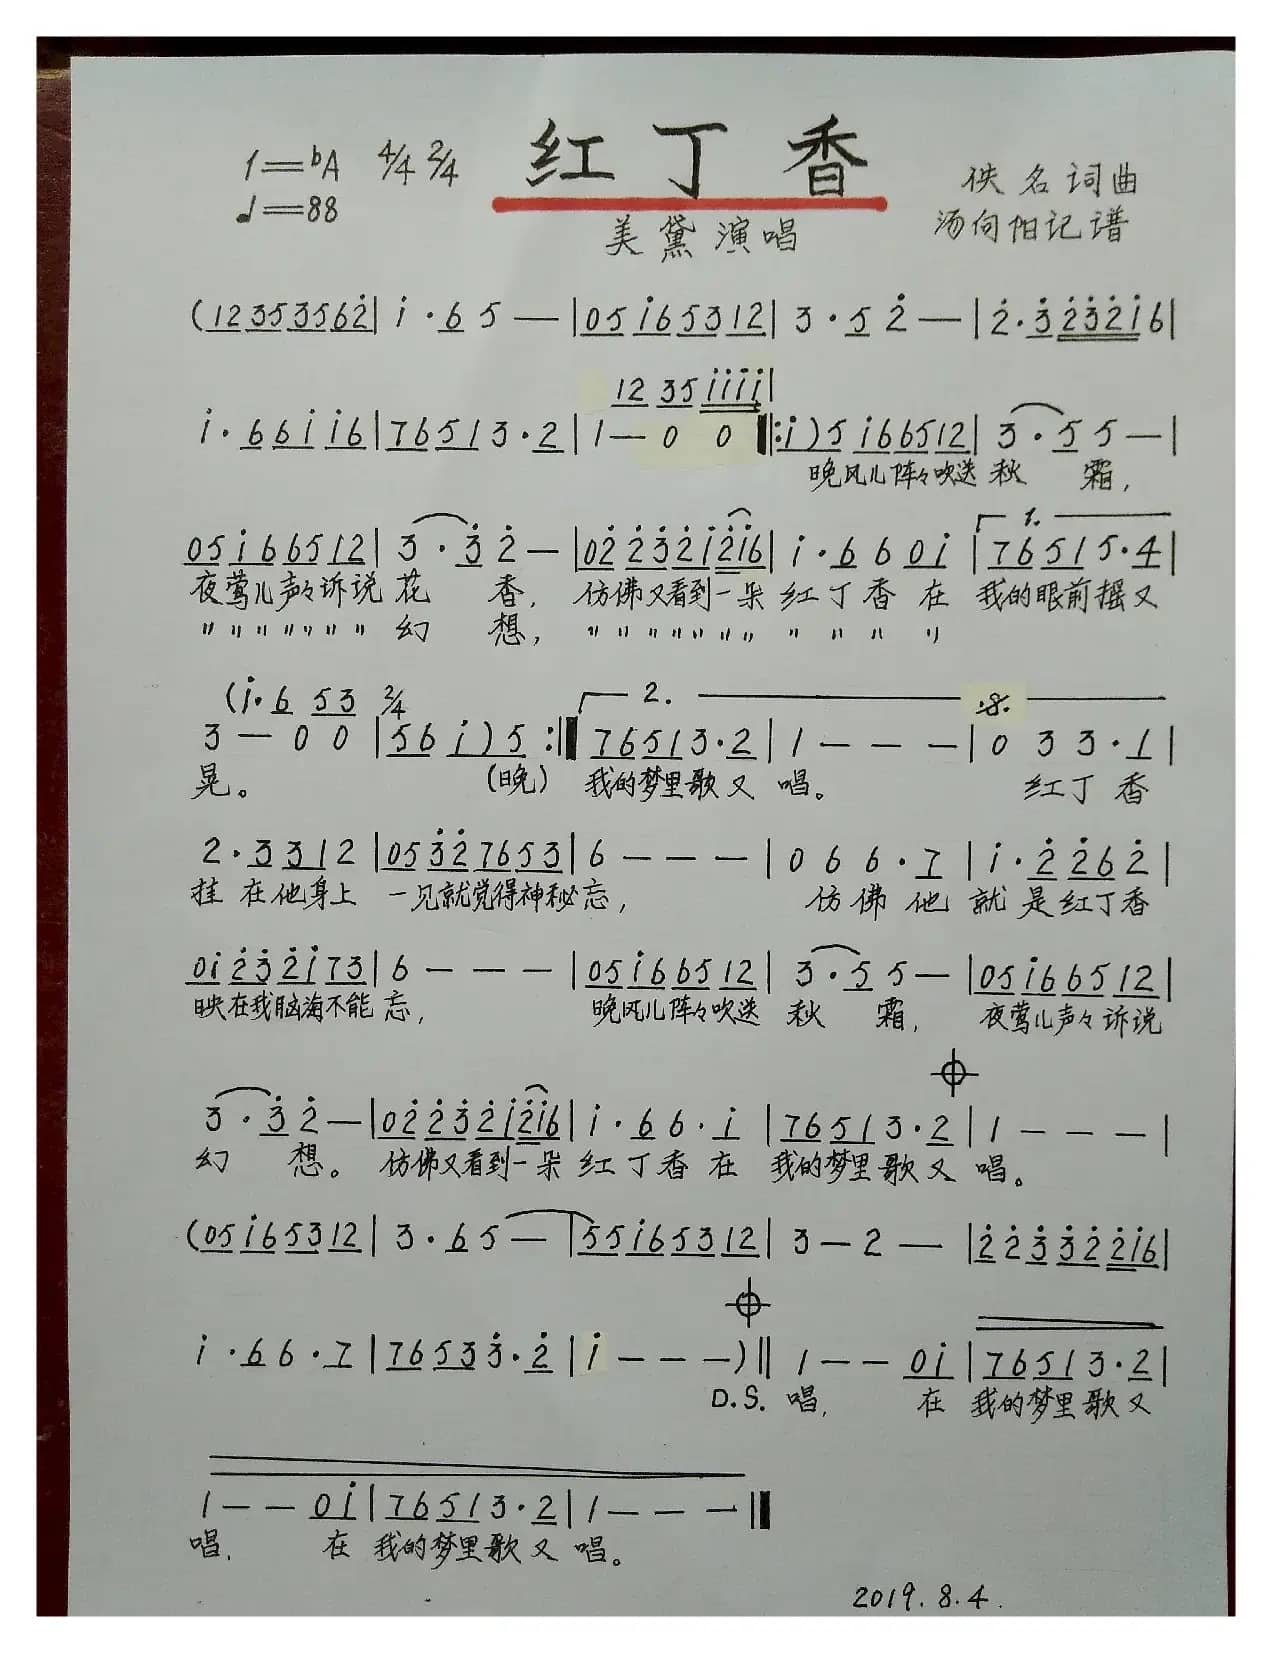 红丁香
1=♭A 4/4 2/4
♩=88
佚名词曲
美黛演唱
汤向阳记谱
(12353562̇| 1̇·65—|051̇65312|3·52̇—|2̇·3̇2̇3̇2̇1̇6|
12 35 1̇1̇1̇1̇|
1̇·661̇1̇6|76513·2|1—0 0‖:1̇)51̇66512|3·55—|
晚风儿阵々吹送秋霜,
1.
051̇66512|3·3̇2̇—|02̇2̇3̇2̇1̇2̇1̇6|1̇·6601̇|76515·4|
夜莺儿声々诉说花香, 仿佛又看到一朵红丁香在我的眼前摇又
〃〃〃〃〃〃〃幻想, 〃〃〃〃〃〃〃〃〃〃〃
(1̇·6 53 2/4 2. 𝄋
3—00|561̇)5:‖76513·2|1———|033·1|
晃。 (晚) 我的梦里歌又唱。 红丁香
2·3312|053̇2̇7653|6———|066·7|1̇·2̇2̇62̇|
挂在他身上 一见就觉得神秘忘, 仿佛他就是红丁香
01̇2̇3̇2̇1̇73|6———|051̇66512|3·55—|051̇66512|
映在我脑海不能忘, 晚风儿阵々吹送秋霜, 夜莺儿声々诉说
𝄌
3·3̇2̇—|02̇2̇3̇2̇1̇2̇1̇6|1̇·66·1̇|76513·2|1———|
幻想。 仿佛又看到一朵红丁香在我的梦里歌又唱。
(051̇65312|3·65—|551̇65312|3—2—|2̇2̇3̇3̇2̇2̇1̇6|
𝄌
1̇·66·7|76533̇·2̇|1̇———)‖1——01̇|76513·2|
D.S. 唱, 在我的梦里歌又
1——01̇|76513·2|1———‖
唱, 在我的梦里歌又唱。
2019.8.4.